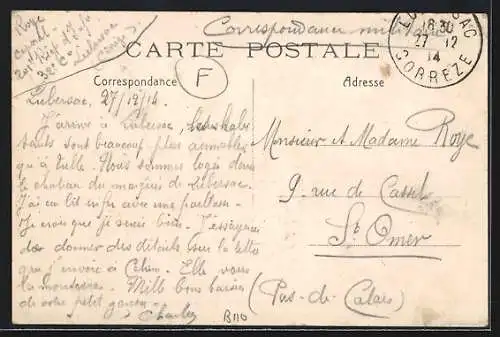 Roye
Correspondance militaire
CARTE POSTALE
LUBERSAC
18 30
27 - 12
14
CORREZE
F
Correspondance
Adresse
Lubersac, 27/12/14.
J'arrive à Lubersac, les habi
tants sont beaucoup plus aimables
qu'à Tulle. Nous sommes logés dans
le chateau du marquis de Lubersac.
J'ai un lit enfin avec une paillasse.
Je crois que je serai bien. J'essayerai
de donner des détails sur la lettre
que j'envoie à Elle vous
la montrera. Mille bons baisers
de votre petit garçon
Charles
Monsieur et Madame Roye
9 rue de Cassel
St Omer
(Pas-de-Calais)
B110